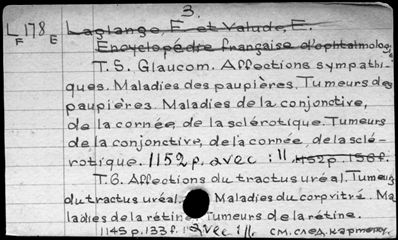 3.
L 178 Lagrange, F. et Valude, E.
F E Encyclopédre française d'ophtalmolog.
T.5. Glaucom. Affections sympathi-
ques. Maladies des paupières. Tumeurs des
paupières. Maladies de la conjonctive,
de la cornée, de la sclérotique. Tumeurs
de la conjonctive, de la cornée, de la sclé-
rotique. 1152 p. avec : 11 1152 p. 156 f.
T.6. Affections du tractus uréal. Tumeurs
du tractus uréal. Maladies du corp vitré. Ma
ladies de la rétine. Tumeurs de la rétine.
1145 p. 133 f. avec : 11. см. след. карточку.